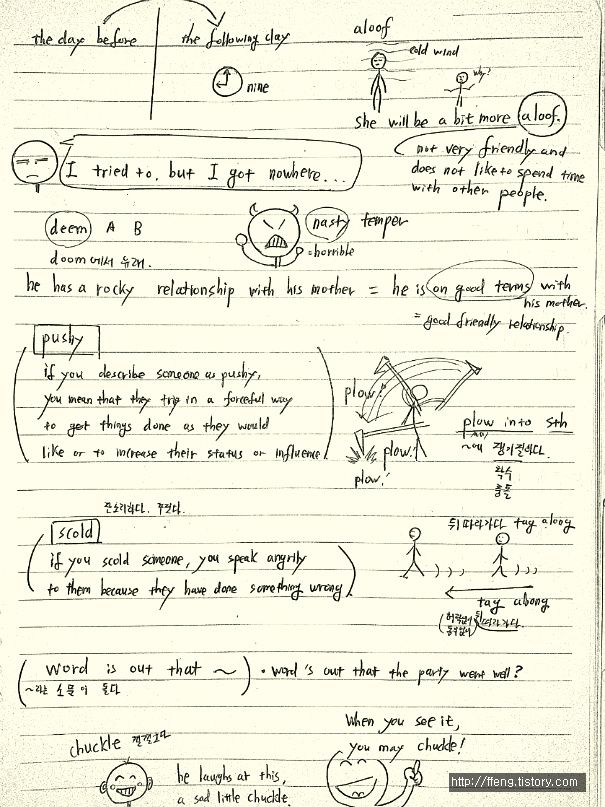 the day before
the following day
nine
aloof
cold wind
why?
She will be a bit more aloof.
not very friendly and
does not like to spend time
with other people.
I tried to, but I got nowhere...
deem A B
doom에서 유래.
nasty temper
=horrible
he has a rocky relationship with his mother = he is on good terms with
his mother.
= good friendly relationship.
pushy
if you describe someone as pushy,
you mean that they trip in a forceful way
to get things done as they would
like or to increase their status or influence
plow!
plow!
plow!
plow into sth
~에 쟁기질하다.
충돌
잔소리하다. 꾸짖다.
scold
if you scold someone, you speak angrily
to them because they have done something wrong.
뒤따라가다 tag along
tag along
(허락없이 뒤따라가다.
word is out that ~
~라는 소문이 돌다
• word's out that the party went well?
chuckle 낄낄웃다
he laughs at this,
a sad little chuckle.
When you see it,
you may chuckle!
http://ffeng.tistory.com